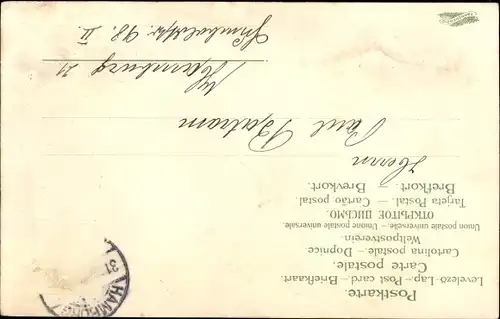 Postkarte.
Levelező-Lap.-Post card.-Briefkaart.
Carte postale.
Cartolina postale. - Dopnice
Weltpostverein-
Union postale universelle. - Unione postale universale
ОТКРЫТОЕ ПИСЬМО.
Tarjeta Postal. - Cartão postal.
Brefkort. - Brevkort.
Herrn
Paul Bartram
Hamburg 21
98. II.
HAMBURG
31